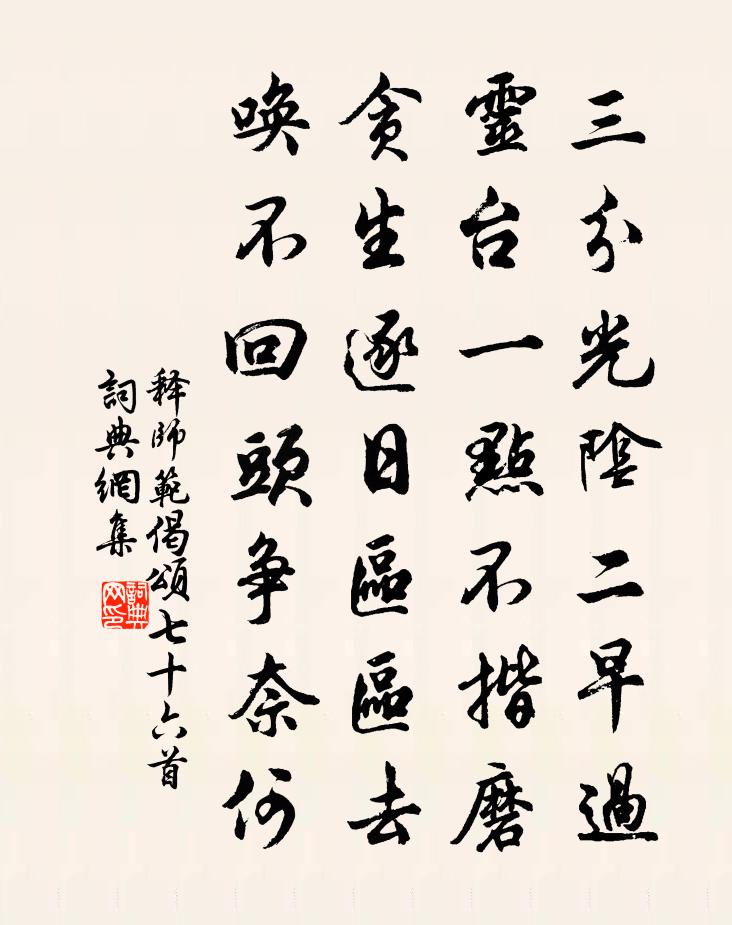 三分光陰二早過
靈台一點不揩磨
貪生逐日區區去
喚不回頭争奈何
释師範偈頌七十六首
詞典網集
詞典网印